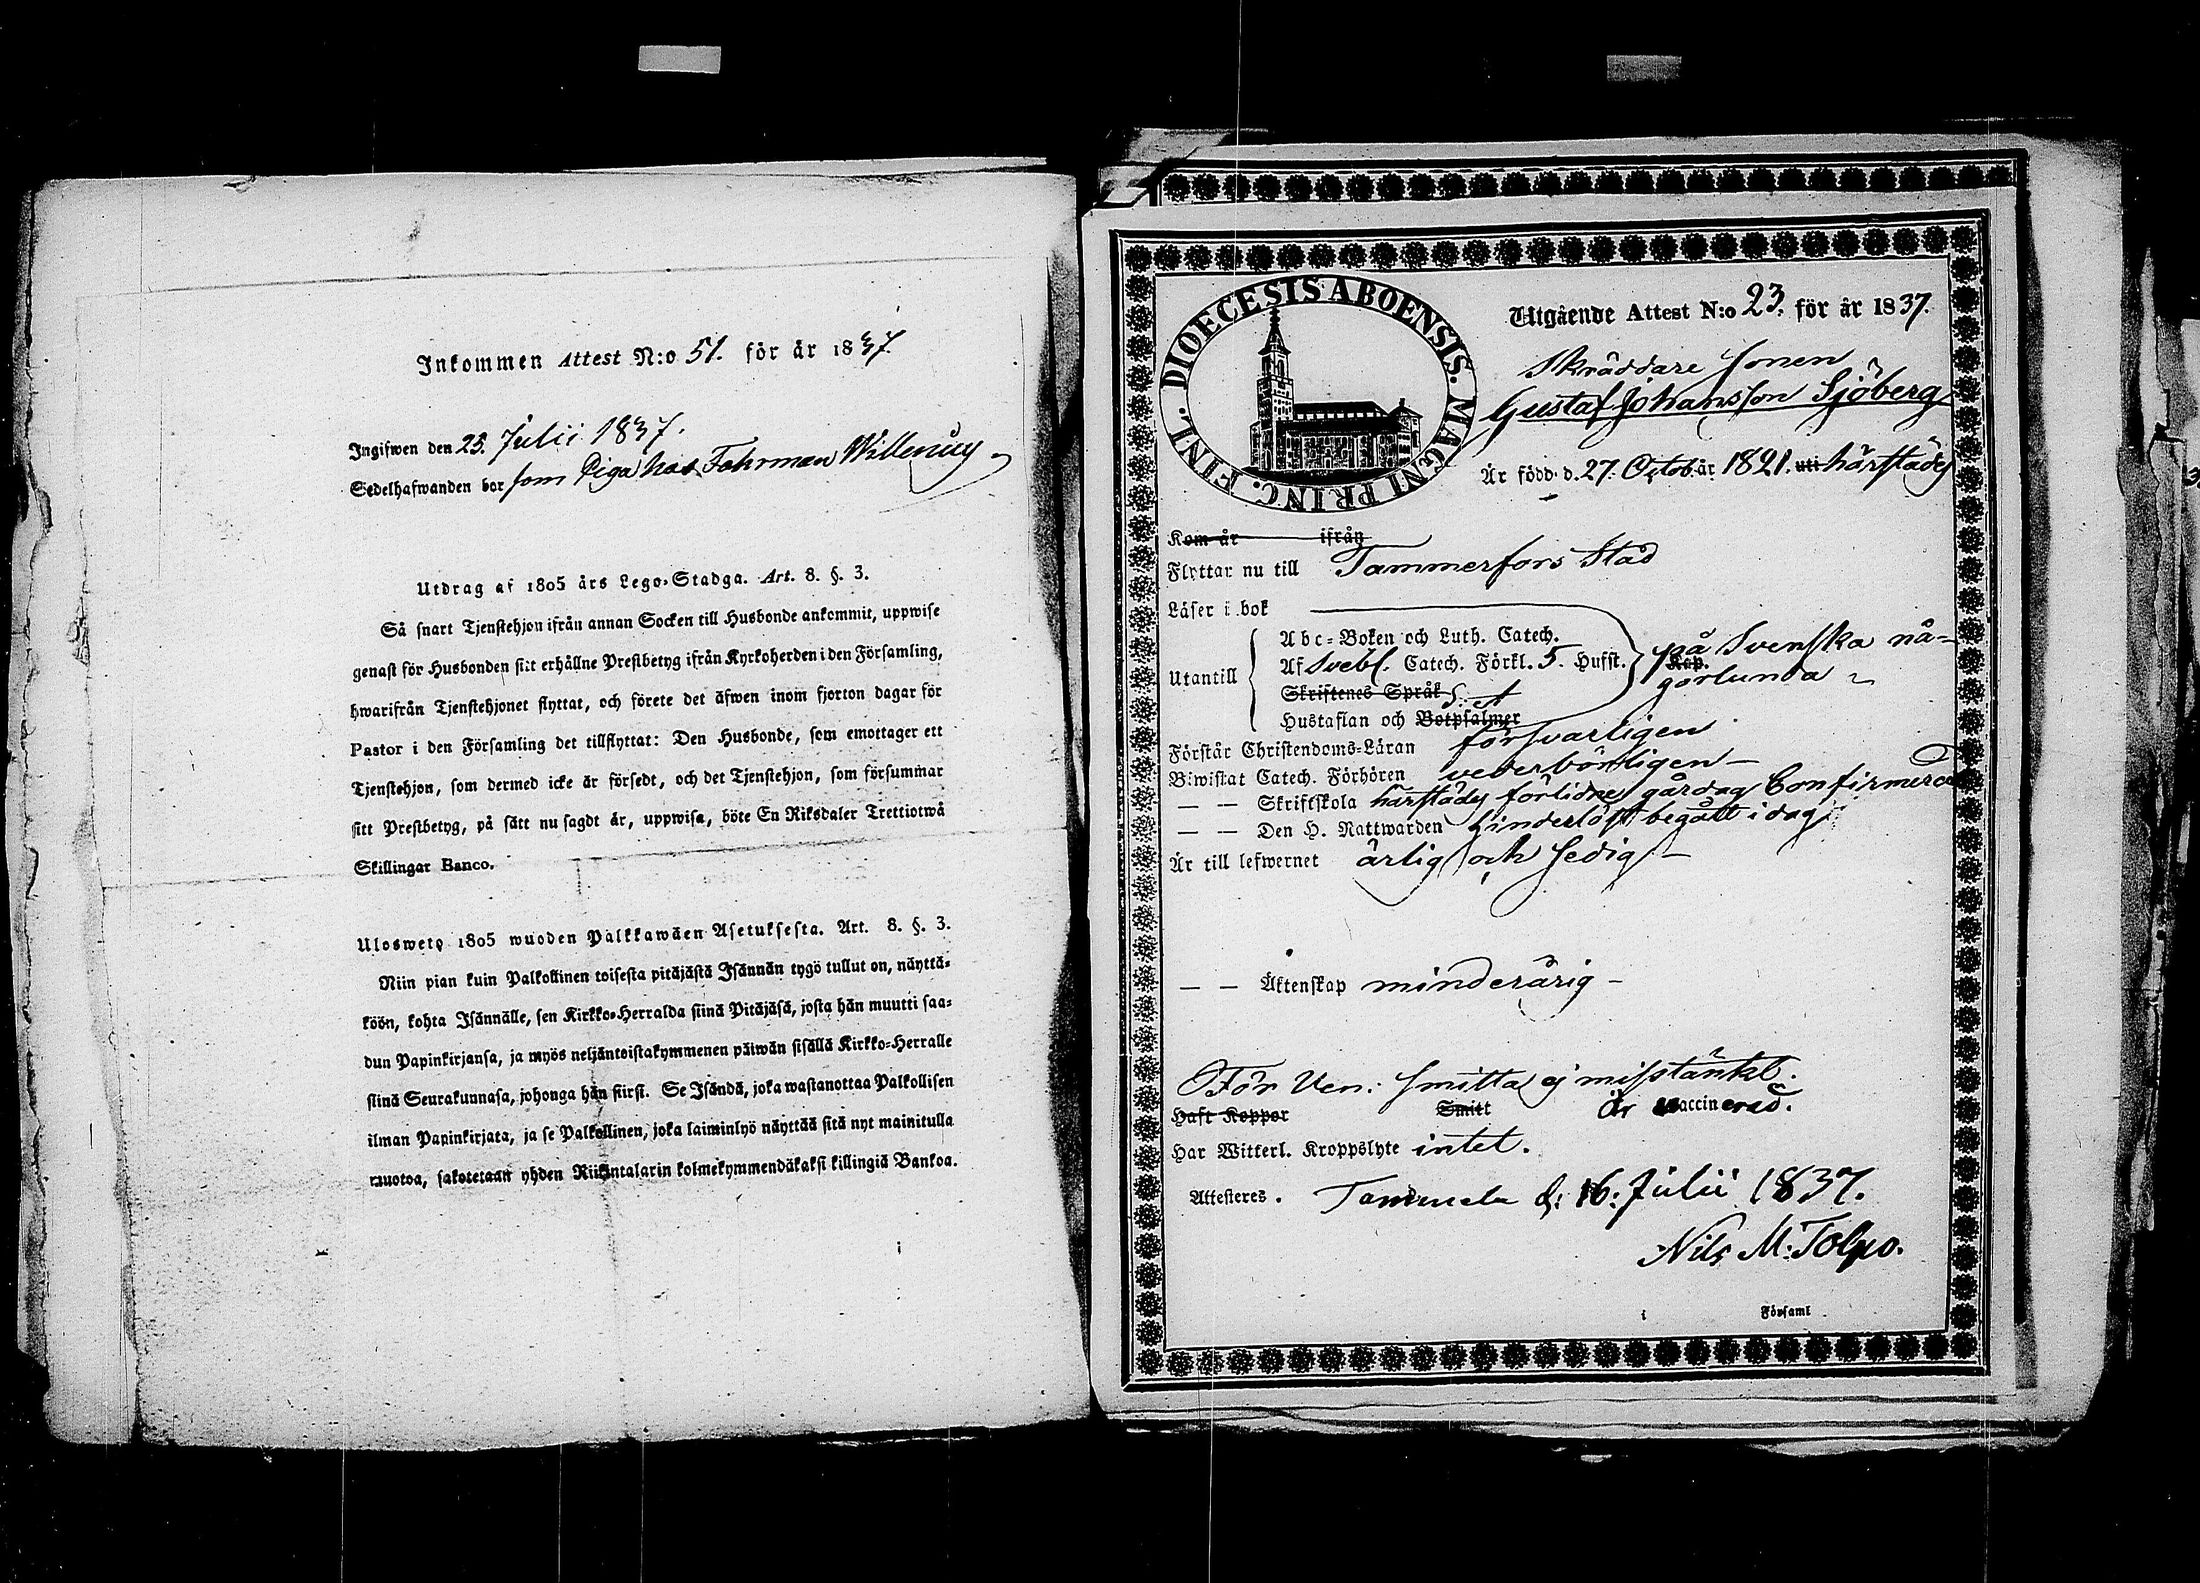 Inkommen Attest N:o 51. för år 1837.
Ingifwen den 25. Julii 1837.
Sedelhafwanden bor som Piga hos Fahrman Willenius
Utdrag af 1805 års Lego-Stadga. Art. 8. §. 3.
Så snart Tjenstehjon ifrån annan Socken till Husbonde ankommit, uppwise
genast för Husbonden sitt erhållne Prestbetyg ifrån Kyrkoherden i den Församling,
hwarifrån Tjenstehjonet flyttat, och förete det äfwen inom fjorton dagar för
Pastor i den Församling det tillflyttat: Den Husbonde, som emottager ett
Tjenstehjon, som dermed icke är försedt, och det Tjenstehjon, som försummar
sitt Prestbetyg, på sätt nu sagdt är, uppwisa, böte En Riksdaler Trettiotwå
Skillingar Banco.
Uloswetę 1805 wuoden Palkkawäen Asetuksesta. Art. 8. §. 3.
Niin pian kuin Palkollinen toisesta pitäjästä Isännän tygö tullut on, näyttä-
köön, kohta Isännälle, sen Kirkko-Herralda siinä Pitäjäsä, josta hän muutti saa-
dun Papinkirjansa, ja myös neljäntoistakymmenen päiwän sisällä Kirkko-Herralle
siinä Seurakunnasa, johonga hän siirsi. Se Isändä, joka wastanottaa Palkollisen
ilman Papinkirjata, ja se Palkollinen, joka laiminlyö näyttää sitä nyt mainitulla
muotoa, sakotetaan yhden Riikintalarin kolmekymmendäkaksi killingiä Bankoa.
DIOECESIS ABOENSIS. MAGNI PRINC. FINL.
Utgående Attest N:o 23. för år 1837.
Skräddare Sonen
Gustaf Johansson Sjöberg
Är född d. 27. Octob. år 1821. uti härstädes
Kom år ifrån
Flyttar nu till Tammerfors Stad
Läser i bok
Utantill
Abc-Boken och Luth. Catech.
Af Svebl. Catech. Förkl. 5. Hufst. Kap.
på Svenska nå-
gorlunda
Skriftenes Språk
Hustaflan och Botpsalmer
Förstår Christendoms-Läran försvarligen
Biwistat Catech. Förhören vederbörligen -
— — Skriftskola härstädes förlidne gårdag Confirmerad
— — Den H. Nattwarden hinderlöst begått i dag
Är till lefwernet ärlig och sedig -
— — Äktenskap minderårig -
För Ven: smitta ej misstänkt.
Haft Koppor Smitt är vaccinerad.
Har Witterl. Kroppslyte intet.
Attesteres. Tammela d: 16: Julii 1837.
Nils M: Tolpo.
i Församl